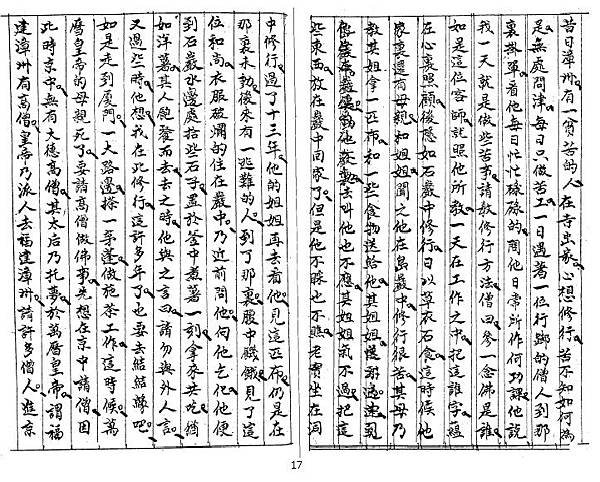 昔日漳州有一貧苦的人在寺出家心想修行苦不知如何為
是無處問津每日只做苦工一日遇著一位行腳的僧人到那
裏掛單看他每日忙忙碌碌的問他日常所作何功課他說
我一天就是做些苦事請教修行方法僧曰參一念佛是誰
如是這位客師就照他所教一天在工作之中把這誰字蘊
在心裏照顧後隱如石巖中修行日以草衣石食這時候他
家裏還有母親和姐姐聞之他在島巖中修行很苦其母乃
教其姐拿一匹布和一些食物送給他其姐姐送到
去叫他也不應其姐姐氣不過把這
些東西放在巖中回家了但是他不睬也不瞧老實坐在洞
中修行過了十三年他的姐姐再去看他見這匹布仍是在
那裏未動後來有一逃難的人到了那裏腹中饑餓見了這
位和尚衣服破爛的住在巖中乃近前問他向他乞化他便
到石巖水邊處拾些石子置於釜中煮著一刻拿來共吃猶
如洋薯其人飽餐而去去之時他與之言曰請勿與外人言
又過些時他想我在此修行這許多年了也要去結結緣吧
如是走到廈門一大路邊搭一茅蓬做施茶工作這時候萬
曆皇帝的母親死了要請高僧做佛事先想在京中請僧因
此時京中無有大德高僧其太后乃托夢於萬曆皇帝謂福
建漳州有高僧皇帝乃派人去福建漳州請許多僧人進京
17